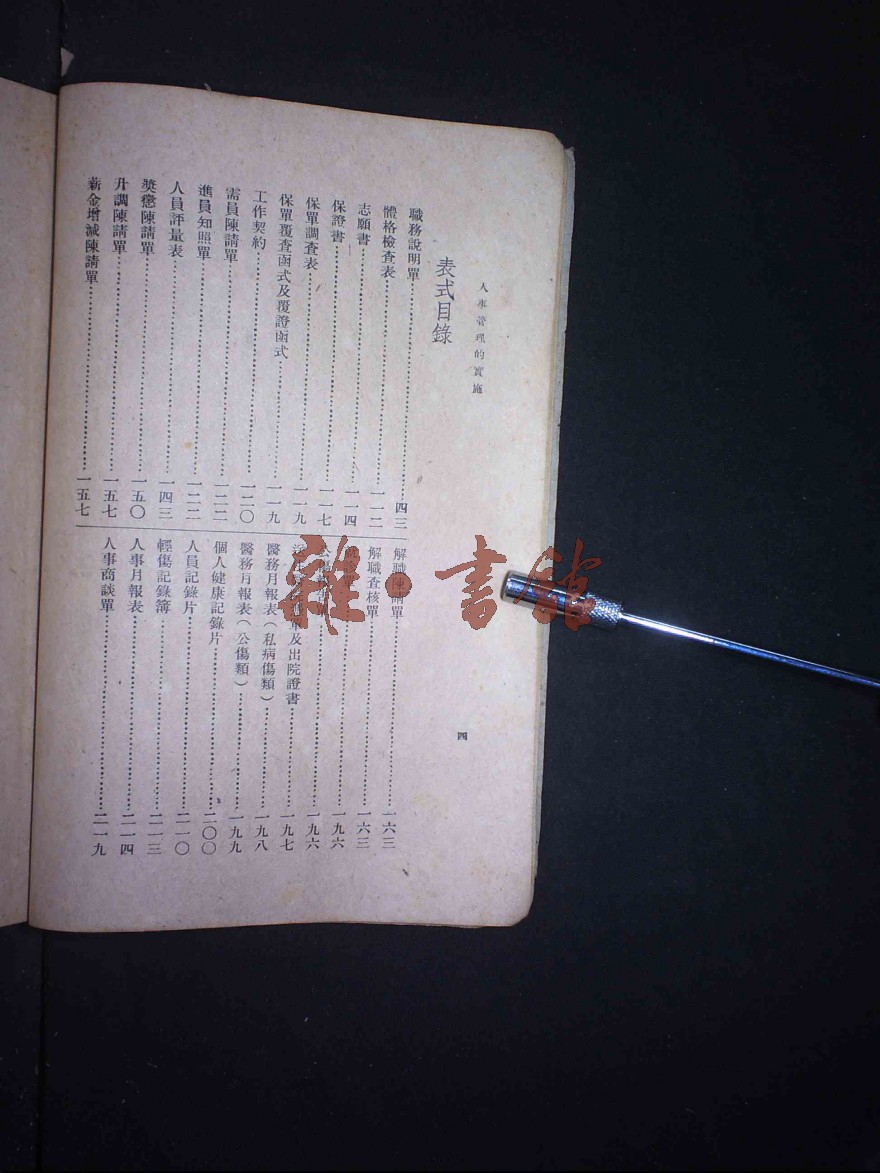 人事管理的實施
四
表式目錄
職務說明單 四三
體格檢查表 一一二
志願書 一一四
保證書 一一七
保單調查表 一一九
保單覆查函式及覆證函式 一一九
工作契約 一二〇
需員陳請單 一二二
進員知照單 一二二
人員評量表 一四三
獎懲陳請單 一五〇
升調陳請單 一五七
薪金增減陳請單 一五七
解職陳請單 一六三
解職查核單 一六三
一九六
一九六
單及出院證書 一九七
醫務月報表(私病傷類) 一九八
醫務月報表(公傷類) 一九九
個人健康記錄片 二〇〇
人員記錄片 二一〇
輕傷記錄簿 二一三
人事月報表 二一四
人事商談單 二一九
雜·書館